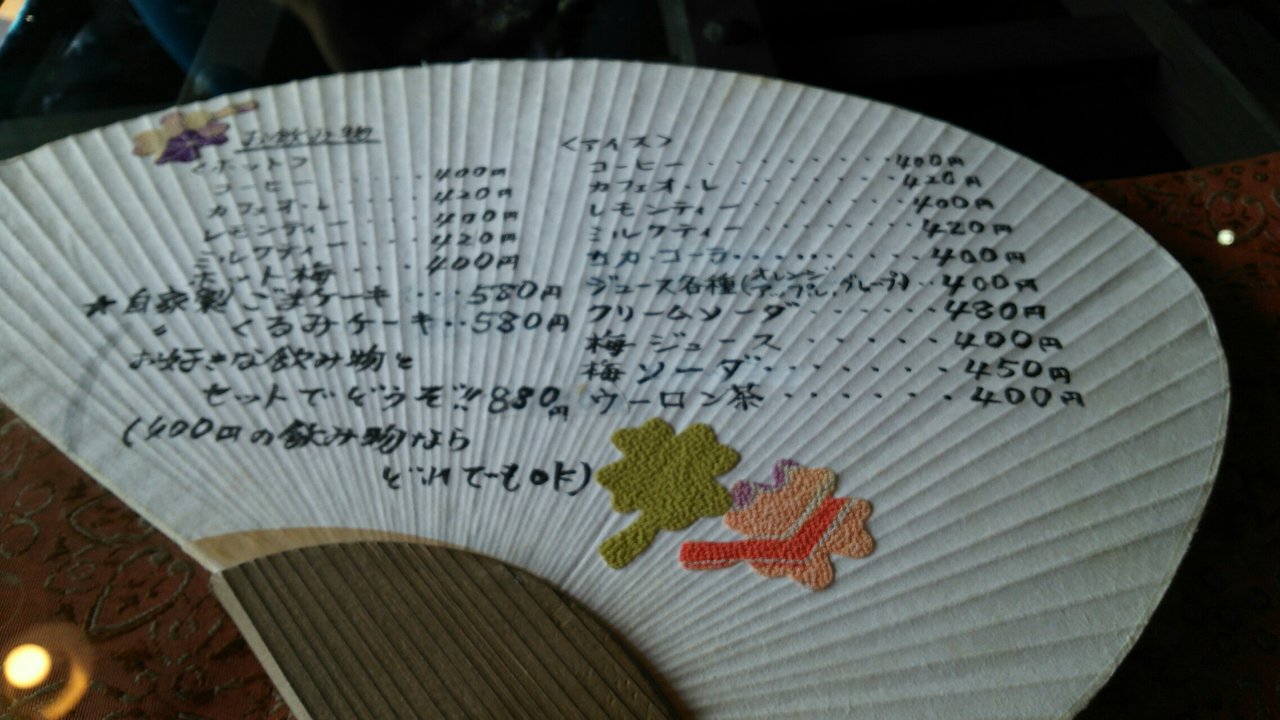 お飲み物
<ホット>
コーヒー ・・・・・ 400円
カフェオ・レ ・・・・ 420円
レモンティー ・・・ 400円
ミルクティー ・・・ 420円
ホット梅 ・・・ 400円
★自家製 ごまケーキ ・・・580円
〃 くるみケーキ・・580円
お好きな飲み物と
セットでどうぞ!! 880円
(400円の飲み物なら
どれでもOK)
<アイス>
コーヒー ・・・・・・・・・ 400円
カフェオ・レ ・・・・・・・・ 420円
レモンティー ・・・・・・・・ 400円
ミルクティー ・・・・・・・・ 420円
コカ・コーラ・・・・・・・・ 400円
ジュース各種(オレンジ,アップル,グレープ)・・400円
クリームソーダ・・・・・・ 480円
梅ジュース ・・・・・・・ 400円
梅ソーダ・・・・・・・・ 450円
ウーロン茶 ・・・・・・・ 400円